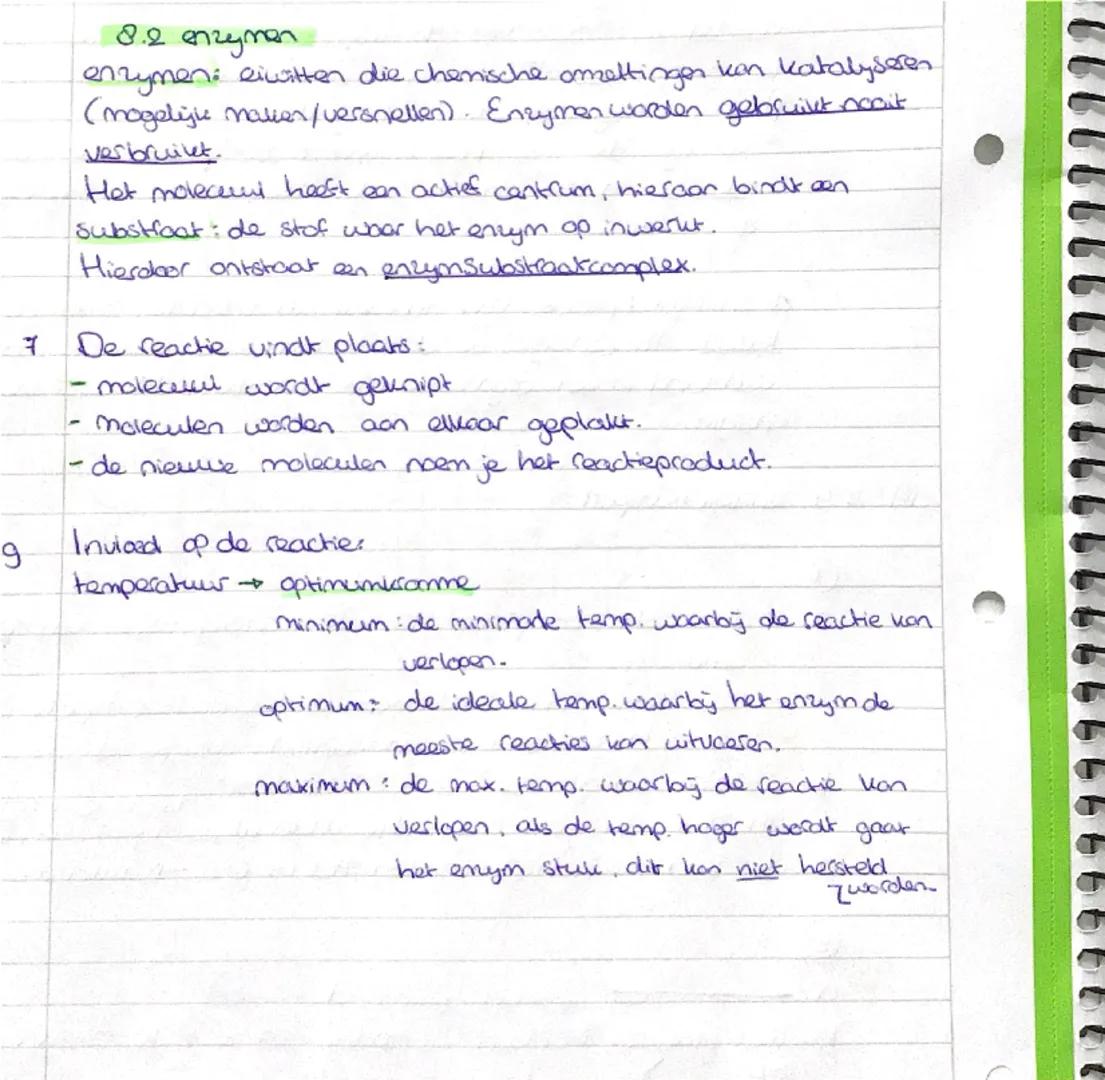 8.2 enzymen
enzymen: eiwitten die chemische omzettingen kan katalyseren
(mogelijk maken/versnellen). Enzymen worden gebruikt nooit
verbruikt.
Het molecuul heeft een actief centrum, hieraan bindt een
substraat: de stof waar het enzym op inwerkt.
Hierdoor ontstaat een enzymsubstraatcomplex.
7 De reactie vindt plaats:
- molecuul wordt geknipt
- moleculen worden aan elkaar geplakt.
- de nieuwe moleculen noem je het reactieproduct.
9 Invloed op de reactie:
temperatuur → optimumkromme
minimum: de minimale temp. waarbij de reactie kan
verlopen.
optimum: de ideale temp. waarbij het enzym de
meeste reacties kan uitvoeren.
maximum: de max. temp. waarbij de reactie kan
verlopen, als de temp. hoger wordt gaat
het enzym stuk, dit kan niet hersteld
worden.